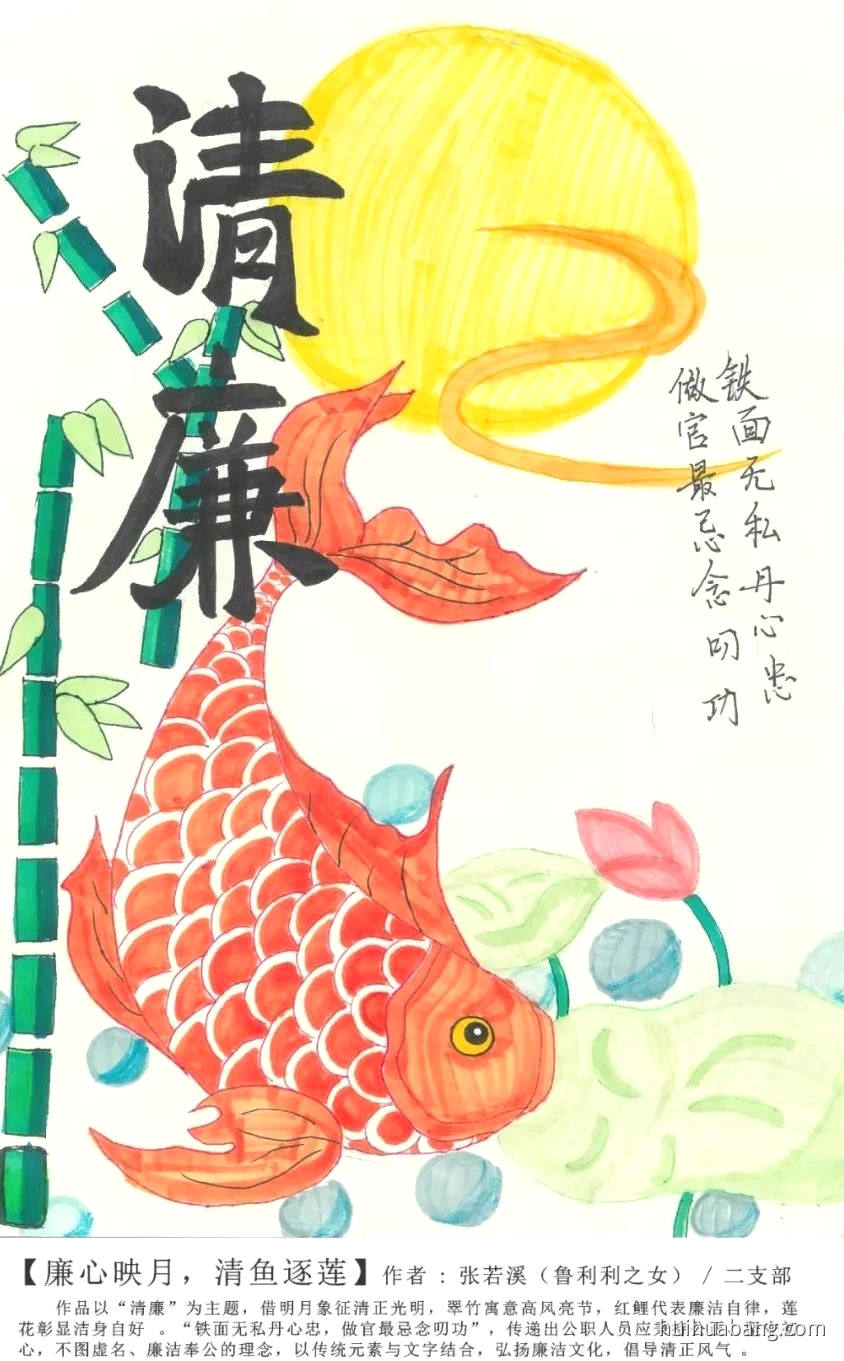 清廉
铁面无私丹心忠
做官最忌念叨功
【廉心映月，清鱼逐莲】作者：张若溪（鲁利利之女）/ 二支部
作品以“清廉”为主题，借明月象征清正光明，翠竹寓意高风亮节，红鲤代表廉洁自律，莲
花彰显洁身自好 。“铁面无私丹心忠，做官最忌念叨功”，传递出公职人员应秉持公正、坚守初
心，不图虚名、廉洁奉公的理念，以传统元素与文字结合，弘扬廉洁文化，倡导清正风气 。
huihuabang.com